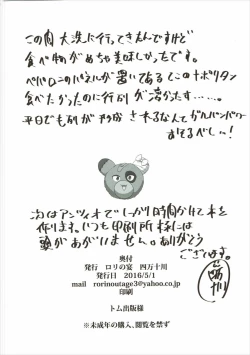 この間大洗に行ってきたんですけど
食べ物がめちゃ美味しかったです。
ペパロニのパネルが置いてある
ナポリタン
食べたかったのに行列が
……。
平日でも列が
されるなんてガルパンパワー
おそるべしぃ!
次はアンツィオでしっかり時間かけて本を
作ります。いつも印刷所様には
頭があがいません。ありがとう
ございます。
奥付
発行 ロリの宴 四万十川
発行日 2016/5/1
mail rorinoutage3@yahoo.co.jp
印刷
トム出版様
※未成年の購入、閲覧を禁ず